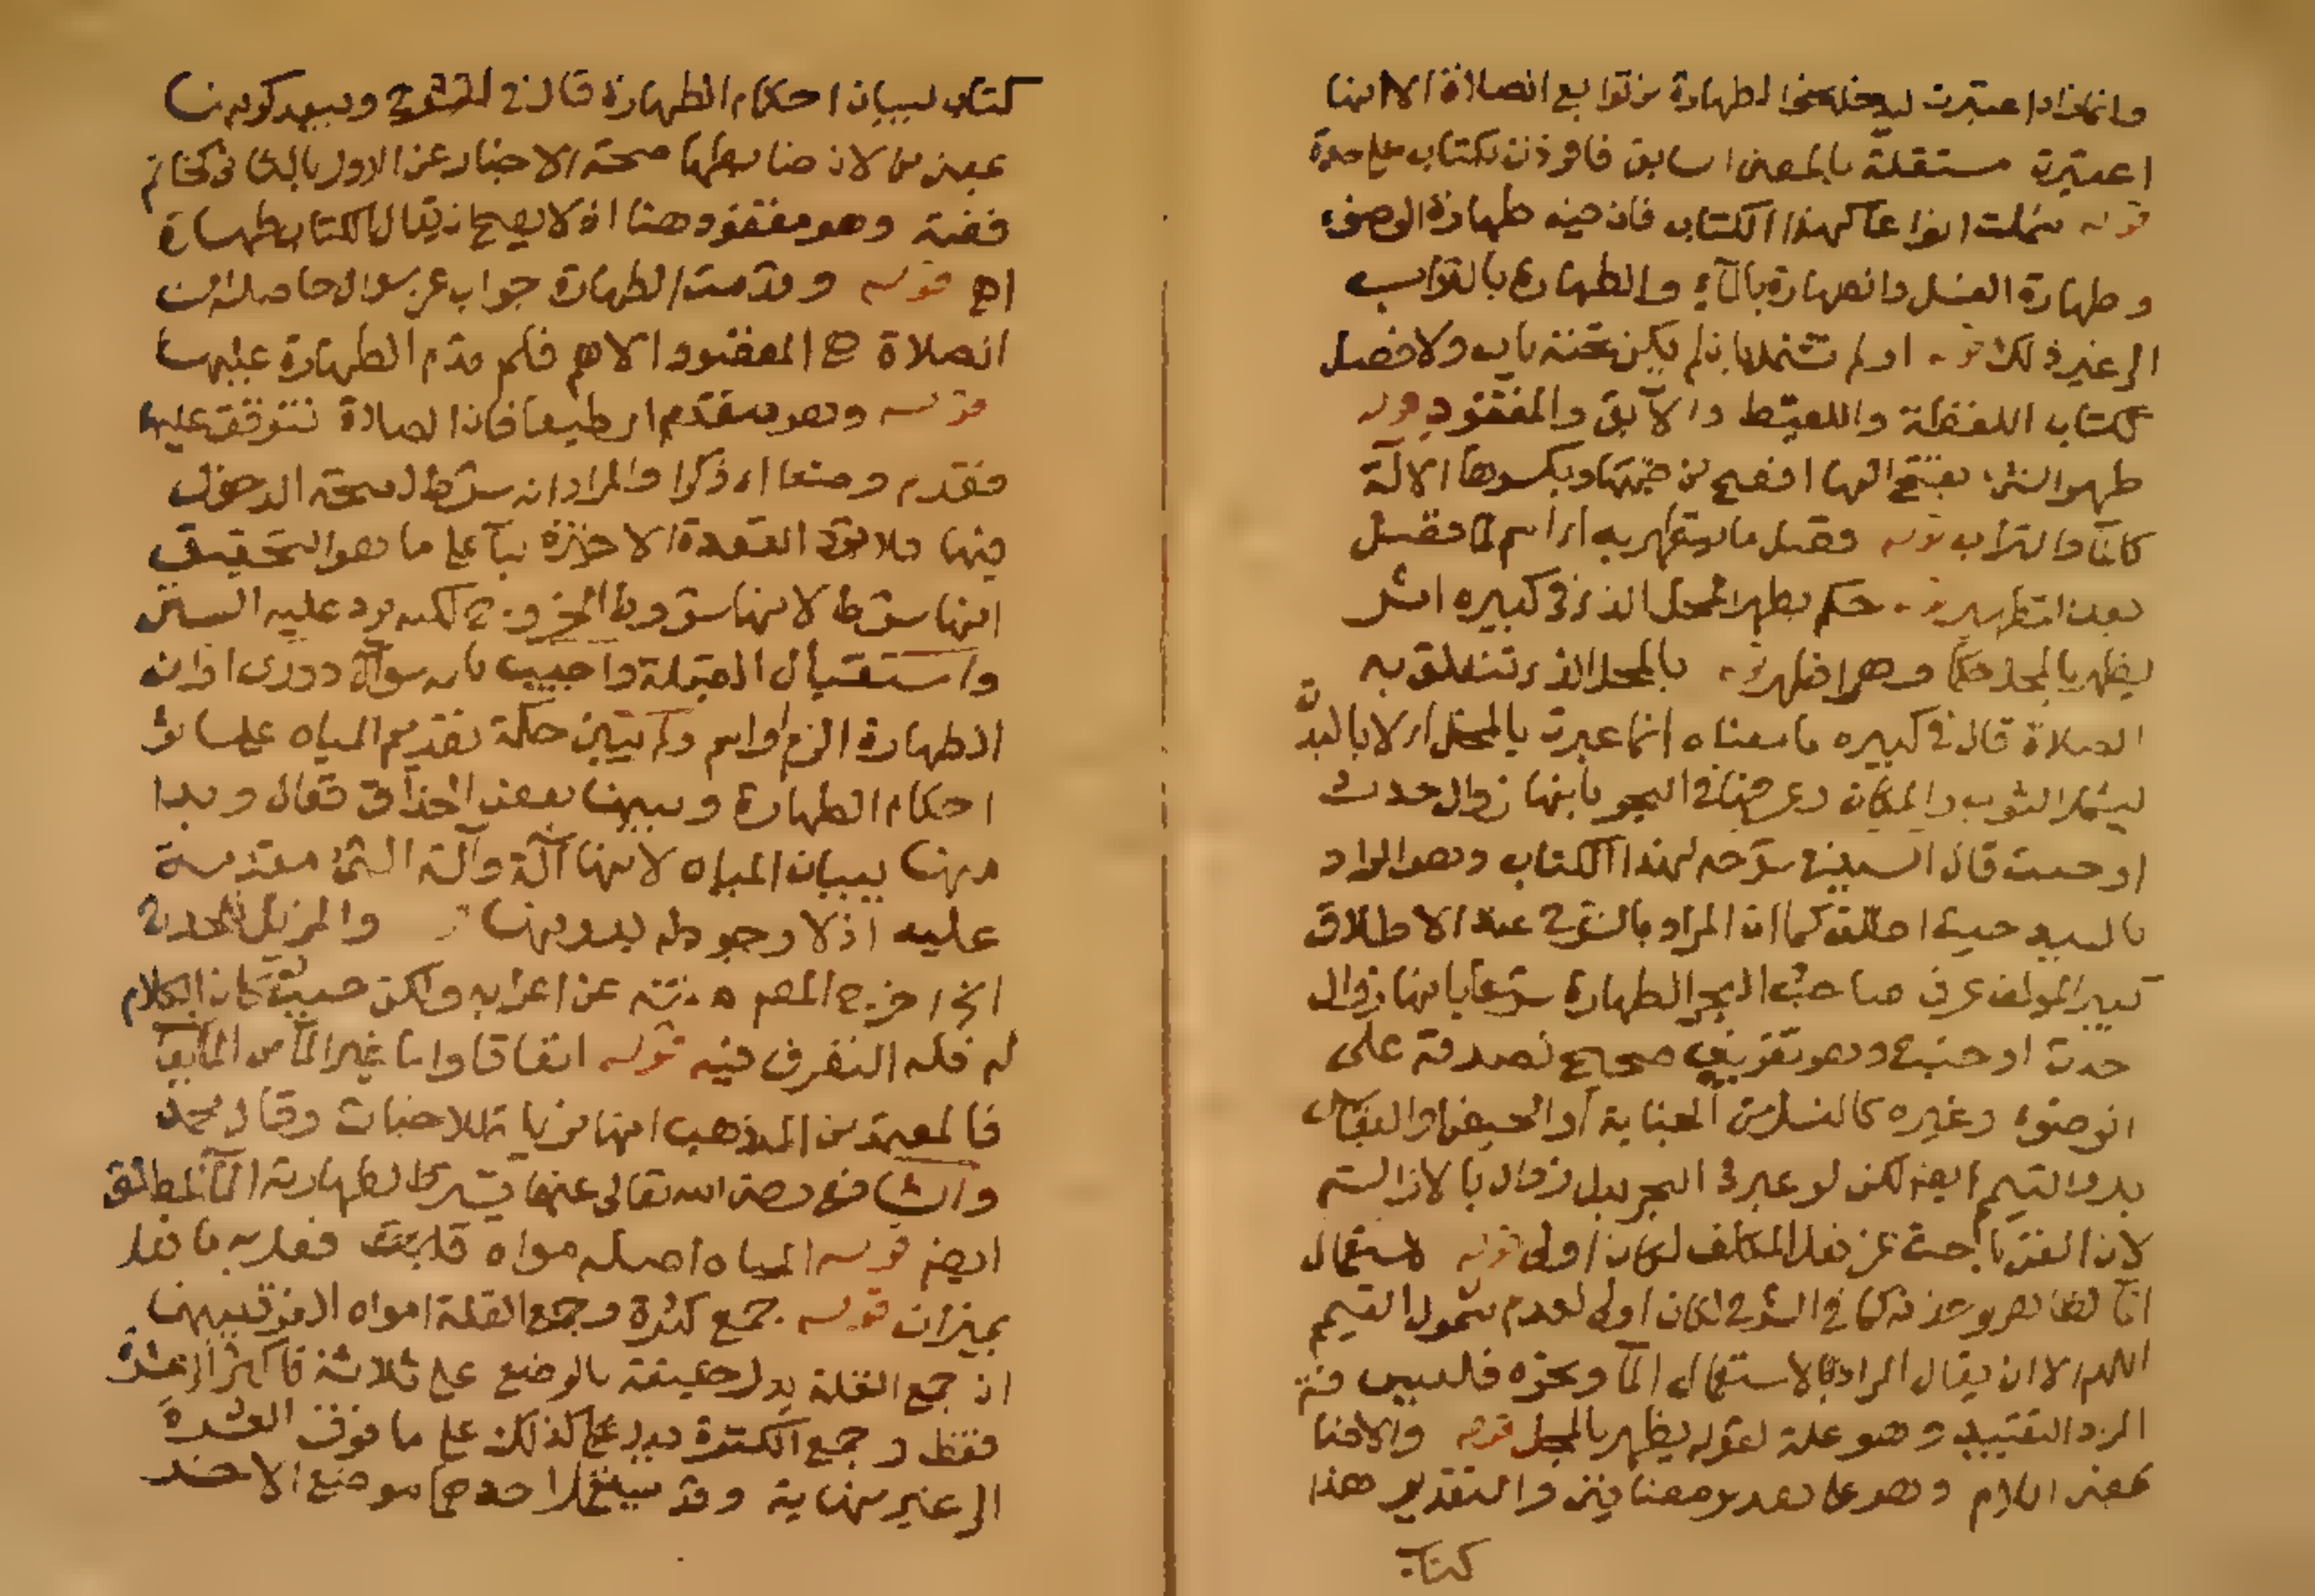 وانما زاد اعتبرت ليدخل نحو الطهارة من توابع الصلاة الا انها
اعتبرت مستقلة بالمعنى السابق فافردت بكتاب على حدة
قوله شملت انواعا كهذا الكتاب فان فيه طهارة الوضوء
وطهارة الغسل والطهارة بالماء والطهارة بالتراب
الى غير ذلك قوله اولم تشمل بان لم يكن تحته باب ولا فصل
ككتاب اللقطة واللقيط والآبق والمفقود قوله
طهر الشئ بفتح الها افصح من ضمها وبكسرها الالة
كالماء والتراب قوله فضل ما يتطهر به اي اسم لما فضل
بعد التطهير قوله حكم يظهر بالمحل الذي في كبيره اثر
يظهر بالمحل حكما وهو اظهر قوله بالمحل الذي تتعلق به
الصلاة قال في كبيره ما معناه انما عبرت بالمحل اي لا بالبدن
ليشمل الثوب والمكان وعرفها في البحر بانها زوال حدث
او خبث قال السيد في شرحه لهذا الكتاب وهو المراد
بالسيد حيث اطلق كما ان المراد بالشرح عند الاطلاق
كبير المؤلف عرف صاحب البحر الطهارة شرعا بانها زوال
حدث او خبث وهو تعريف صحيح لصدقه على
الوضوء وغيره كالغسل من الجنابة او الحيض والنفاس
بل والتيمم ايضا لكن لو عبر في البحر بدل زوال بالازالة
لان الفقه باحث عن فعل المكلف لكان اولى قوله لاستعمال
الماء لظاهر وحذفه كما في الشرح لكان اولى لعدم شمول التيمم
اللهم الا ان يقال المراد بالاستعمال الماء ونحوه فليس فيه
الرد التقييد وهو علة لقوله يظهر بالمحل قوله والاضا
بمعنى اللام وهو على تقدير مضافين والتقدير هذا
كتاب
كتاب لبيان احكام الطهارة قال في الشرح ويبعد كونها
بمعنى من لان ضابطها صحة الاخبار عن الاول بالثاني كخاتم
فضة وهو مفقود هنا اذ لا يصح ان يقال الكتاب طهارة
اهـ قوله وقدمت الطهارة جواب عن سؤال حاصله ان
الصلاة هي المقصود الاهم فلم قدم الطهارة عليها
قوله وهو مقدم اي طبعا فان الصلاة تتوقف عليها
فقدم وضعا اي ذكرا والمراد انه شرط لصحة الدخول
فيها فلا ترد القعدة الاخيرة بناء على ما هو التحقيق
انها شرط لانها شرط الخروج لكنه يرد عليه الستر
واستقبال القبلة واجيب بانه سؤال دوري او ان
الطهارة الزم واهم ولم يبين حكمة تقديم المياه على سائر
احكام الطهارة وبينها بعض الحذاق فقال وبدا
منها ببيان المياه لانها آلة وآلة الشئ مقدمة
عليه اذ لا وجود له بدونها والمزيل للحدث
الخ اخرج المص متنه عن اعرابه ولكن حيث كان الكلام
له فله التفرق فيه قوله اتفاقا واما غير الماء من المايع
فالمعتمد من المذهب انها مزيلة للاخبات وقال محمد
والشافعي رضي الله تعالى عنهما يشترط لطهارته الماء المطلق
ايضا قوله المياه اصله مواه قلبت ففعل به ما فعل
بميزان قوله جمع كثرة وجمع القلة امواه الفرق بينهما
ان جمع القلة يدل حقيقة بالوضع على ثلاثة فاكثر الى عشرة
فقط وجمع الكثرة يدل على كذلك على ما فوق العشرة
الى غير نهاية وقد يستعمل احدهما موضع الاخر